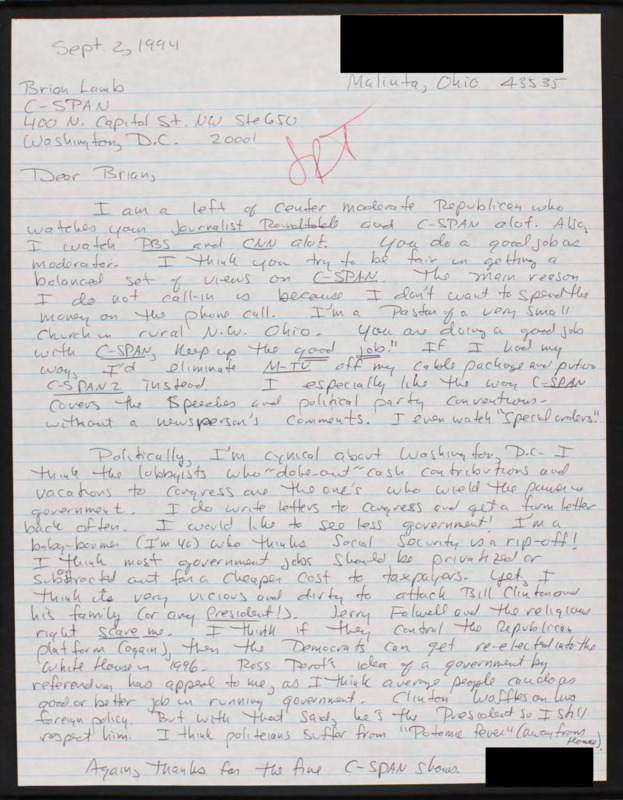 Sept. 2, 1994
Malinta, Ohio 43535
Brian Lamb
C-SPAN
400 N. Capital St. NW Ste 650
Washington, D.C. 20001
Dear Brian,
I am a left of center moderate Republican who
watches your Journalist Roundtable and C-SPAN alot. Also,
I watch PBS and CNN alot. You do a good job as
moderator. I think you try to be fair in getting a
balanced set of views on C-SPAN. The main reason
I do not call-in is because I don't want to spend the
money on the phone call. I'm a Pastor of a very small
church in rural N.W. Ohio. You are doing a good job
with C-SPAN, Keep up the good job!" If I had my
way, I'd eliminate M-TV off my cable package and put on
C-SPAN 2 instead. I especially like the way C-SPAN
covers the speeches and political party conventions-
without a newsperson's comments. I even watch "special orders!"
Politically, I'm cynical about Washington, D.C. I
think the lobbyists who "dole-out" cash contributions and
vacations to congress are the one's who wield the power in
government. I do write letters to congress and get a form letter
back often. I would like to see less government! I'm a
baby-boomer (I'm 40) who thinks Social Security is a rip-off!
I think most government jobs should be privatized or
subtracted out for a cheaper cost to taxpayers. Yet, I
think its very vicious and dirty to attack Bill Clinton and
his family (or any President!). Jerry Falwell and the religious
right scare me. I think if they control the Republican
platform (again), then the Democrats can get re-elected into the
White House in 1996. Ross Perot's idea of a government by
referendum has appeal to me, as I think average people can do as
good or better job in running government. Clinton waffles on his
foreign policy. But with that said, he's the President so I still
respect him. I think politicians suffer from "Potomic fever" (away from
Home).
Again, thanks for the fine C-SPAN shows